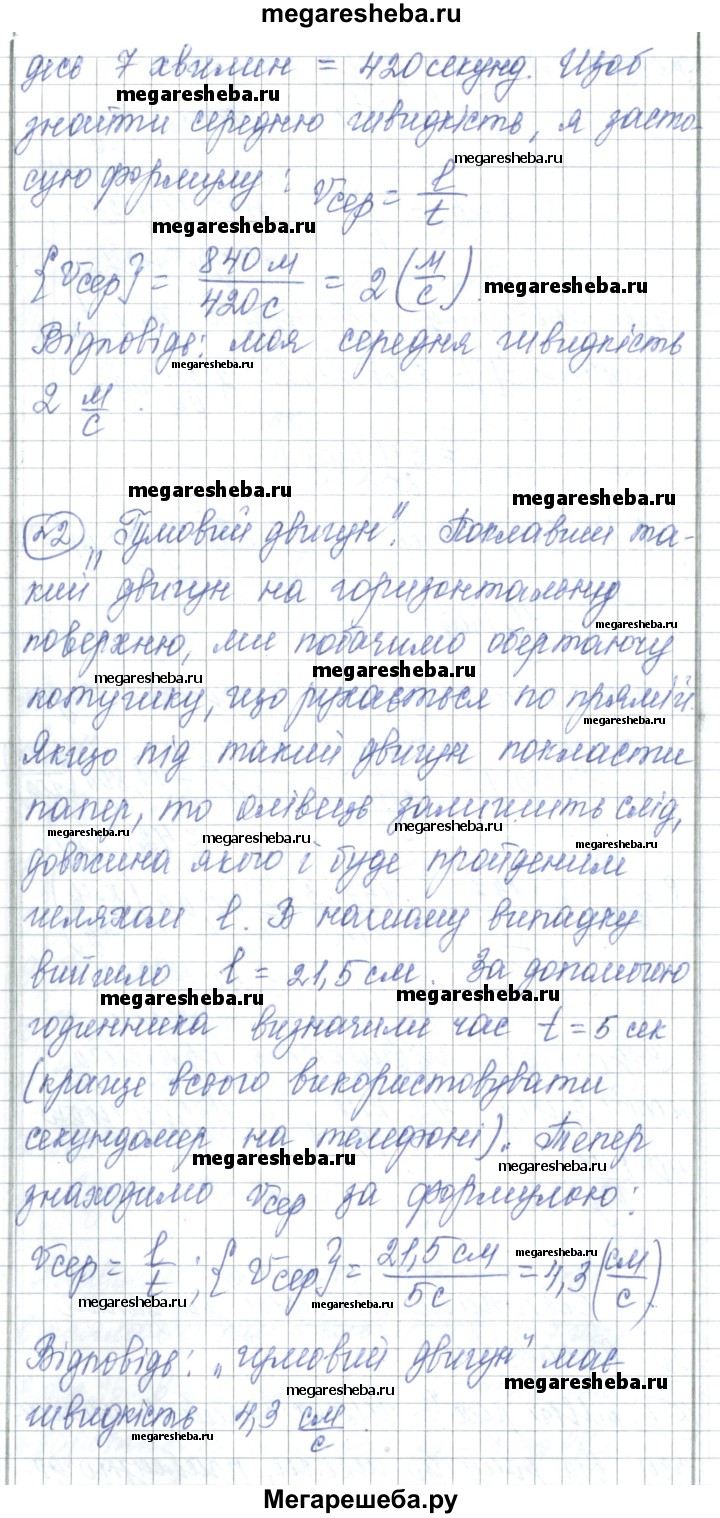 megaresheba.ru
дісь 7 хвилин = 420 секунд. Щоб
megaresheba.ru
знайти середню швидкість, я засто-
megaresheba.ru
сую формулу: vсер = l/t
megaresheba.ru
{vсер} = 840 м/420 с = 2 (м/с).
megaresheba.ru
Відповідь: моя середня швидкість
megaresheba.ru
2 м/с.
megaresheba.ru
megaresheba.ru
„Гумовий двигун". Поклавши та-
кий двигун на горизонтальну
megaresheba.ru
поверхню, ми побачимо обертаючу
megaresheba.ru megaresheba.ru
котушку, що рухається по прямій.
megaresheba.ru
Якщо під такий двигун покласти
папер, то олівець залишить слід,
megaresheba.ru megaresheba.ru megaresheba.ru megaresheba.ru
довжина якого і буде пройденим
шляхом l. В нашому випадку
вийшло l = 21,5 см. За допомогою
megaresheba.ru megaresheba.ru
годинника визначили час t = 5 сек
(краще всього використовувати
секундомер на телефоні). Тепер
megaresheba.ru megaresheba.ru
знаходимо vсер за формулою:
vсер = l/t; {vсер} = 21,5 см/5 с = 4,3 (см/с).
megaresheba.ru
megaresheba.ru megaresheba.ru
Відповідь: „гумовий двигун" має
megaresheba.ru megaresheba.ru
швидкість 4,3 см/с.
megaresheba.ru
Мегарешеба.ру